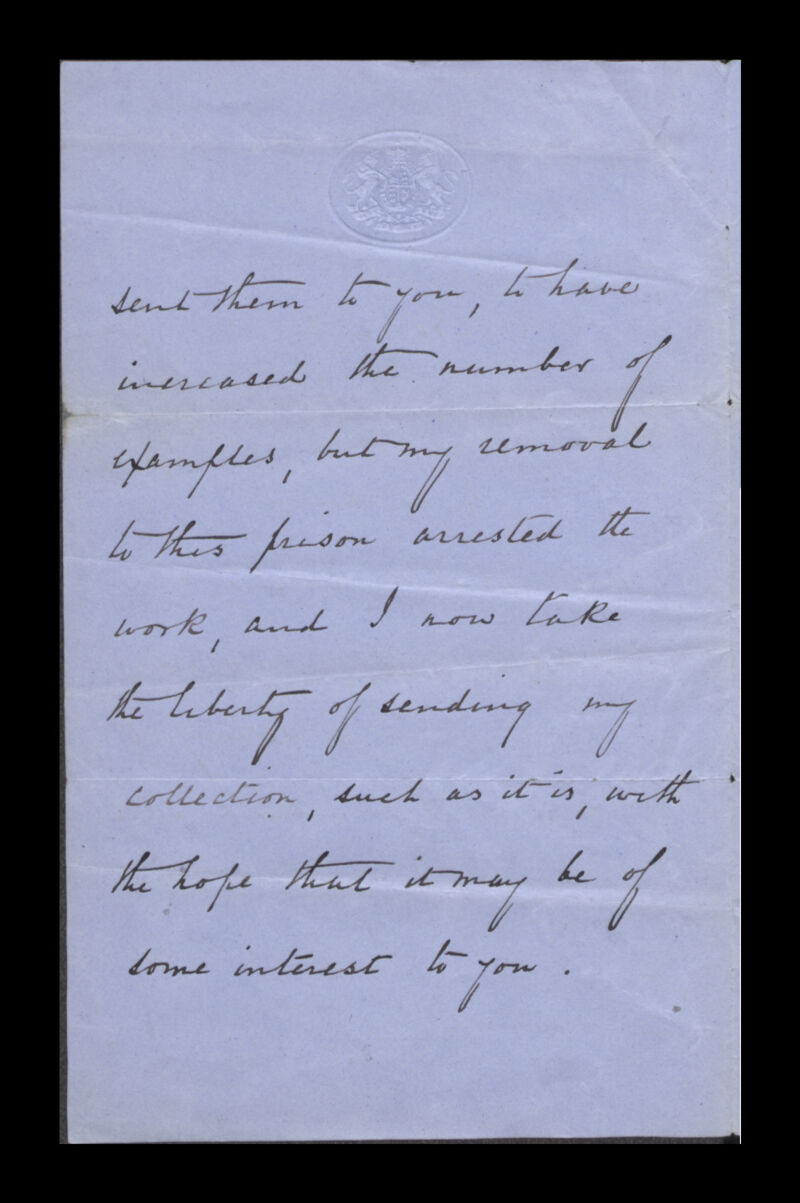 sent them to you, to have
increased the number of
examples, but my removal
to this prison arrested the
work, and I now take
the liberty of sending my
collection, such as it is, with
the hope that it may be of
some interest to you.